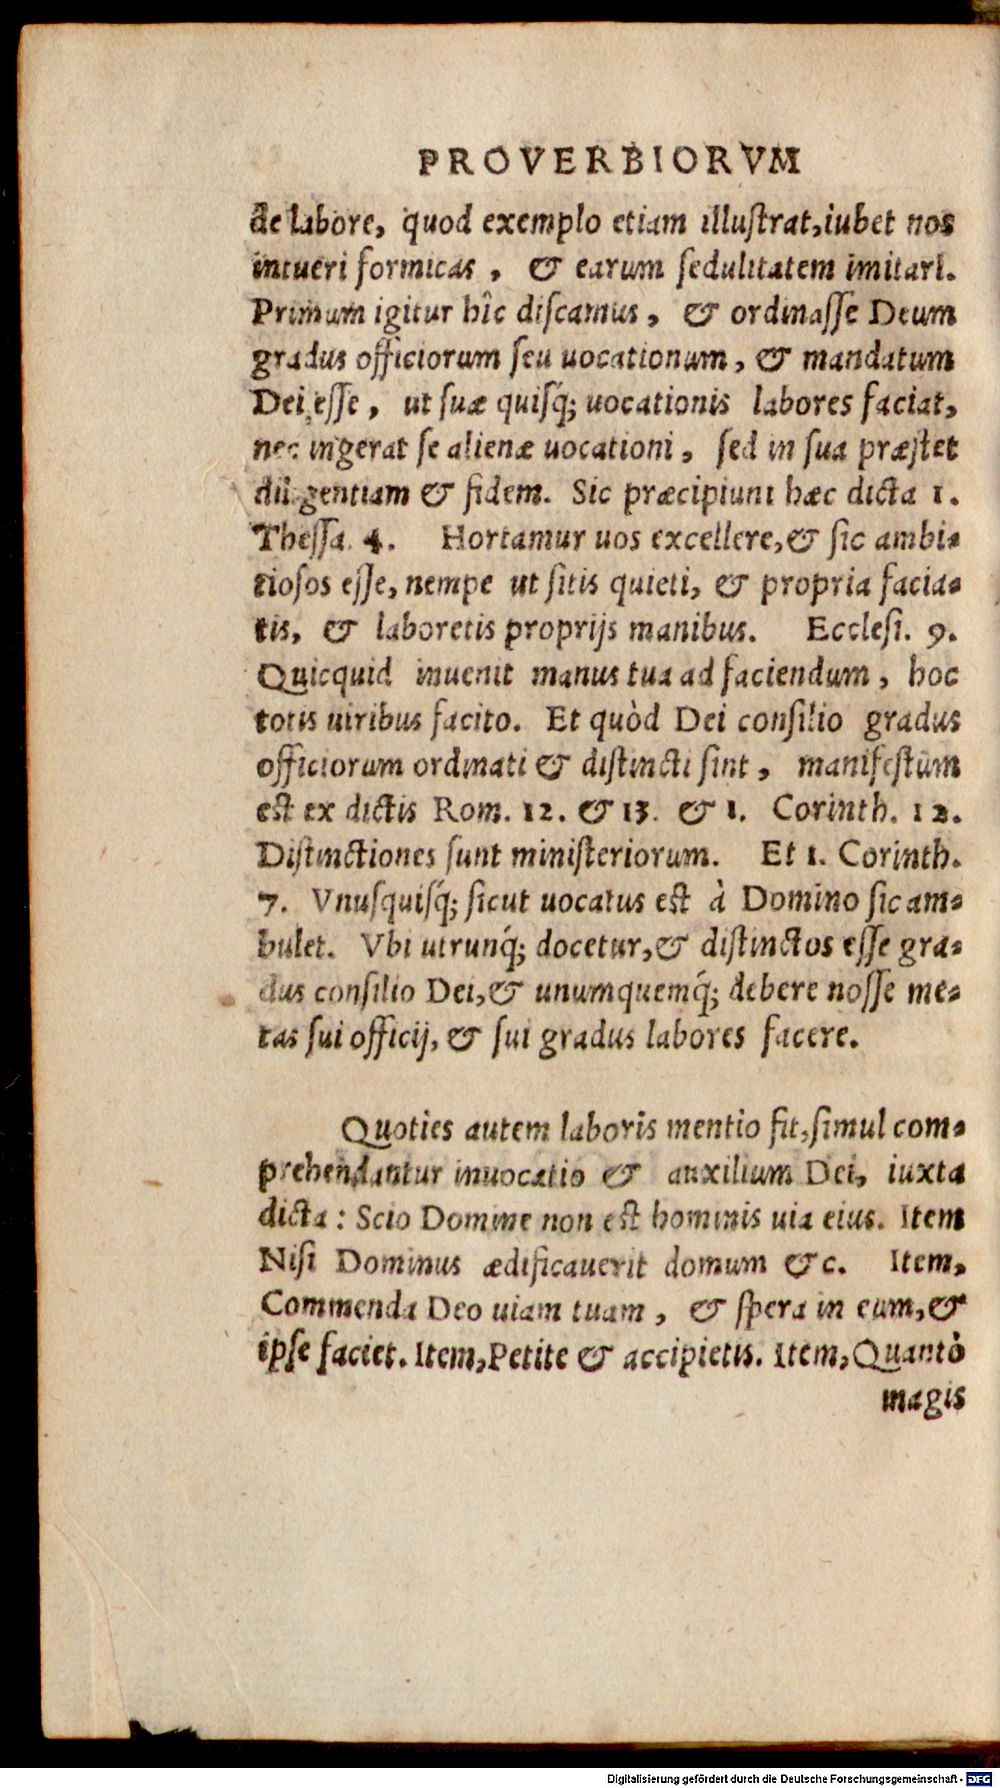 PROVERBIORVM
de labore, quod exemplo etiam illuſtrat, iubet nos
intueri formicas, & earum ſedulitatem imitari.
Primum igitur hîc diſcamus, & ordinaſſe Deum
gradus officiorum ſeu uocationum, & mandatum
Dei eſſe, ut ſuæ quiſq́; uocationis labores faciat,
nec ingerat ſe alienæ uocationi, ſed in ſua præſtet
diligentiam & fidem. Sic præcipiunt hæc dicta 1.
Theſſa. 4. Hortamur uos excellere, & ſic ambi-
tioſos eſſe, nempe ut ſitis quieti, & propria facia-
tis, & laboretis proprijs manibus. Eccleſi. 9.
Quicquid inuenit manus tua ad faciendum, hoc
totis uiribus facito. Et quòd Dei conſilio gradus
officiorum ordinati & diſtincti ſint, manifeſtum
est ex dictis Rom. 12. & 13. & 1. Corinth. 12.
Diſtinctiones ſunt miniſteriorum. Et 1. Corinth.
7. Vnuſquiſq́; ſicut uocatus est à Domino ſic am-
bulet. Vbi utrunq́; docetur, & diſtinctos eſſe gra-
dus conſilio Dei, & unumquemq́; debere noſſe me-
tas ſui officij, & ſui gradus labores facere.
Quoties autem laboris mentio fit, ſimul com-
prehendantur inuocatio & auxilium Dei, iuxta
dicta: Scio Domine non est hominis uia eius. Item
Niſi Dominus ædificauerit domum &c. Item,
Commenda Deo uiam tuam, & ſpera in eum, &
ipſe faciet. Item, Petite & accipietis. Item, Quantò
magis
Digitalisierung gefördert durch die Deutsche Forschungsgemeinschaft - DFG